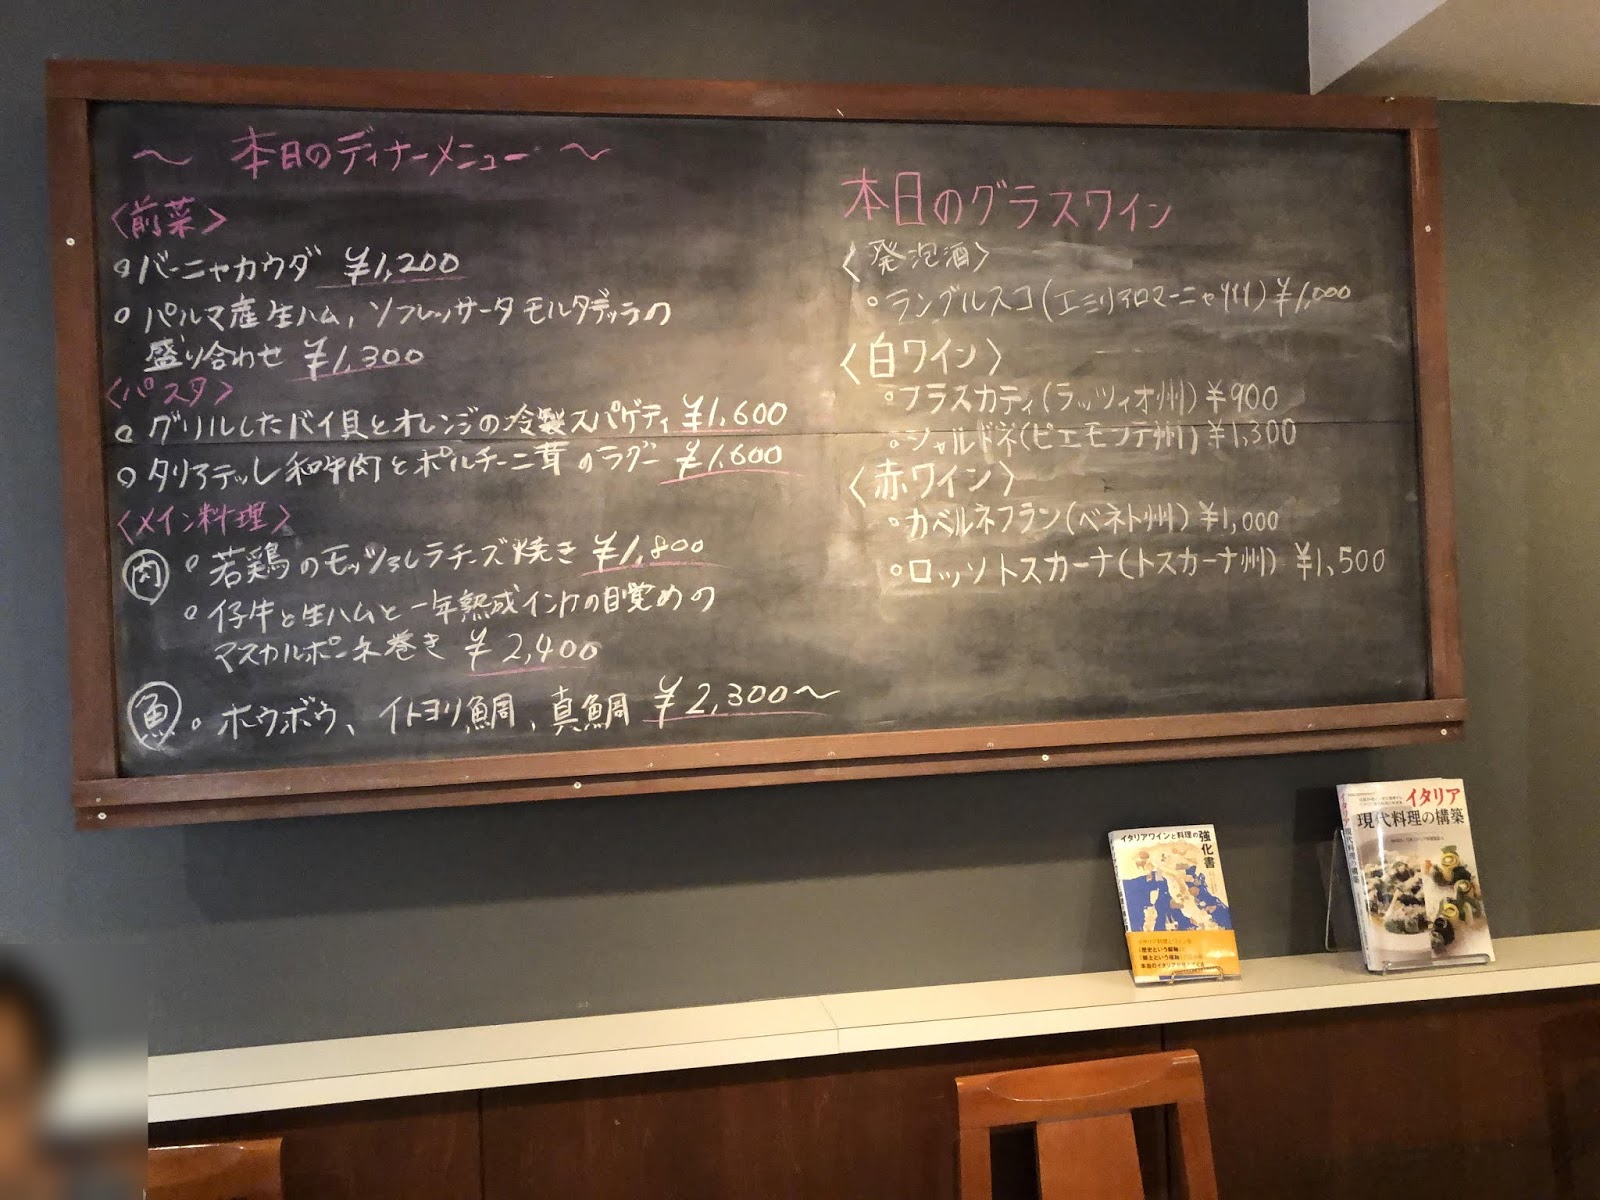 ～ 本日のディナーメニュー ～
〈前菜〉
○バーニャカウダ ¥1,200
○パルマ産生ハム,ソフレッサータ モルタデッラの
盛り合わせ ¥1,300
〈パスタ〉
○グリルしたバイ貝とオレンジの冷製スパゲティ ¥1,600
○タリアテッレ 和牛肉とポルチーニ茸のラグー ¥1,600
〈メイン料理〉
肉 ○若鶏のモッツァレラチーズ焼き ¥1,800
○仔牛と生ハムと一年熟成インカの目覚めの
マスカルポーネ巻き ¥2,400
魚 ○ホウボウ、イトヨリ鯛、真鯛 ¥2,300～
本日のグラスワイン
〈発泡酒〉
○ラングルスコ(エミリアロマーニャ州) ¥1,000
〈白ワイン〉
○フラスカティ(ラッツィオ州) ¥900
○シャルドネ(ピエモンテ州) ¥1,300
〈赤ワイン〉
○カベルネフラン(ベネト州) ¥1,000
○ロッソトスカーナ(トスカーナ州) ¥1,500
イタリアワインと料理の
強化書
《歴史という縦軸》
「郷土という横軸」
イタリア
現代料理の構築
イタリア現代料理の構築